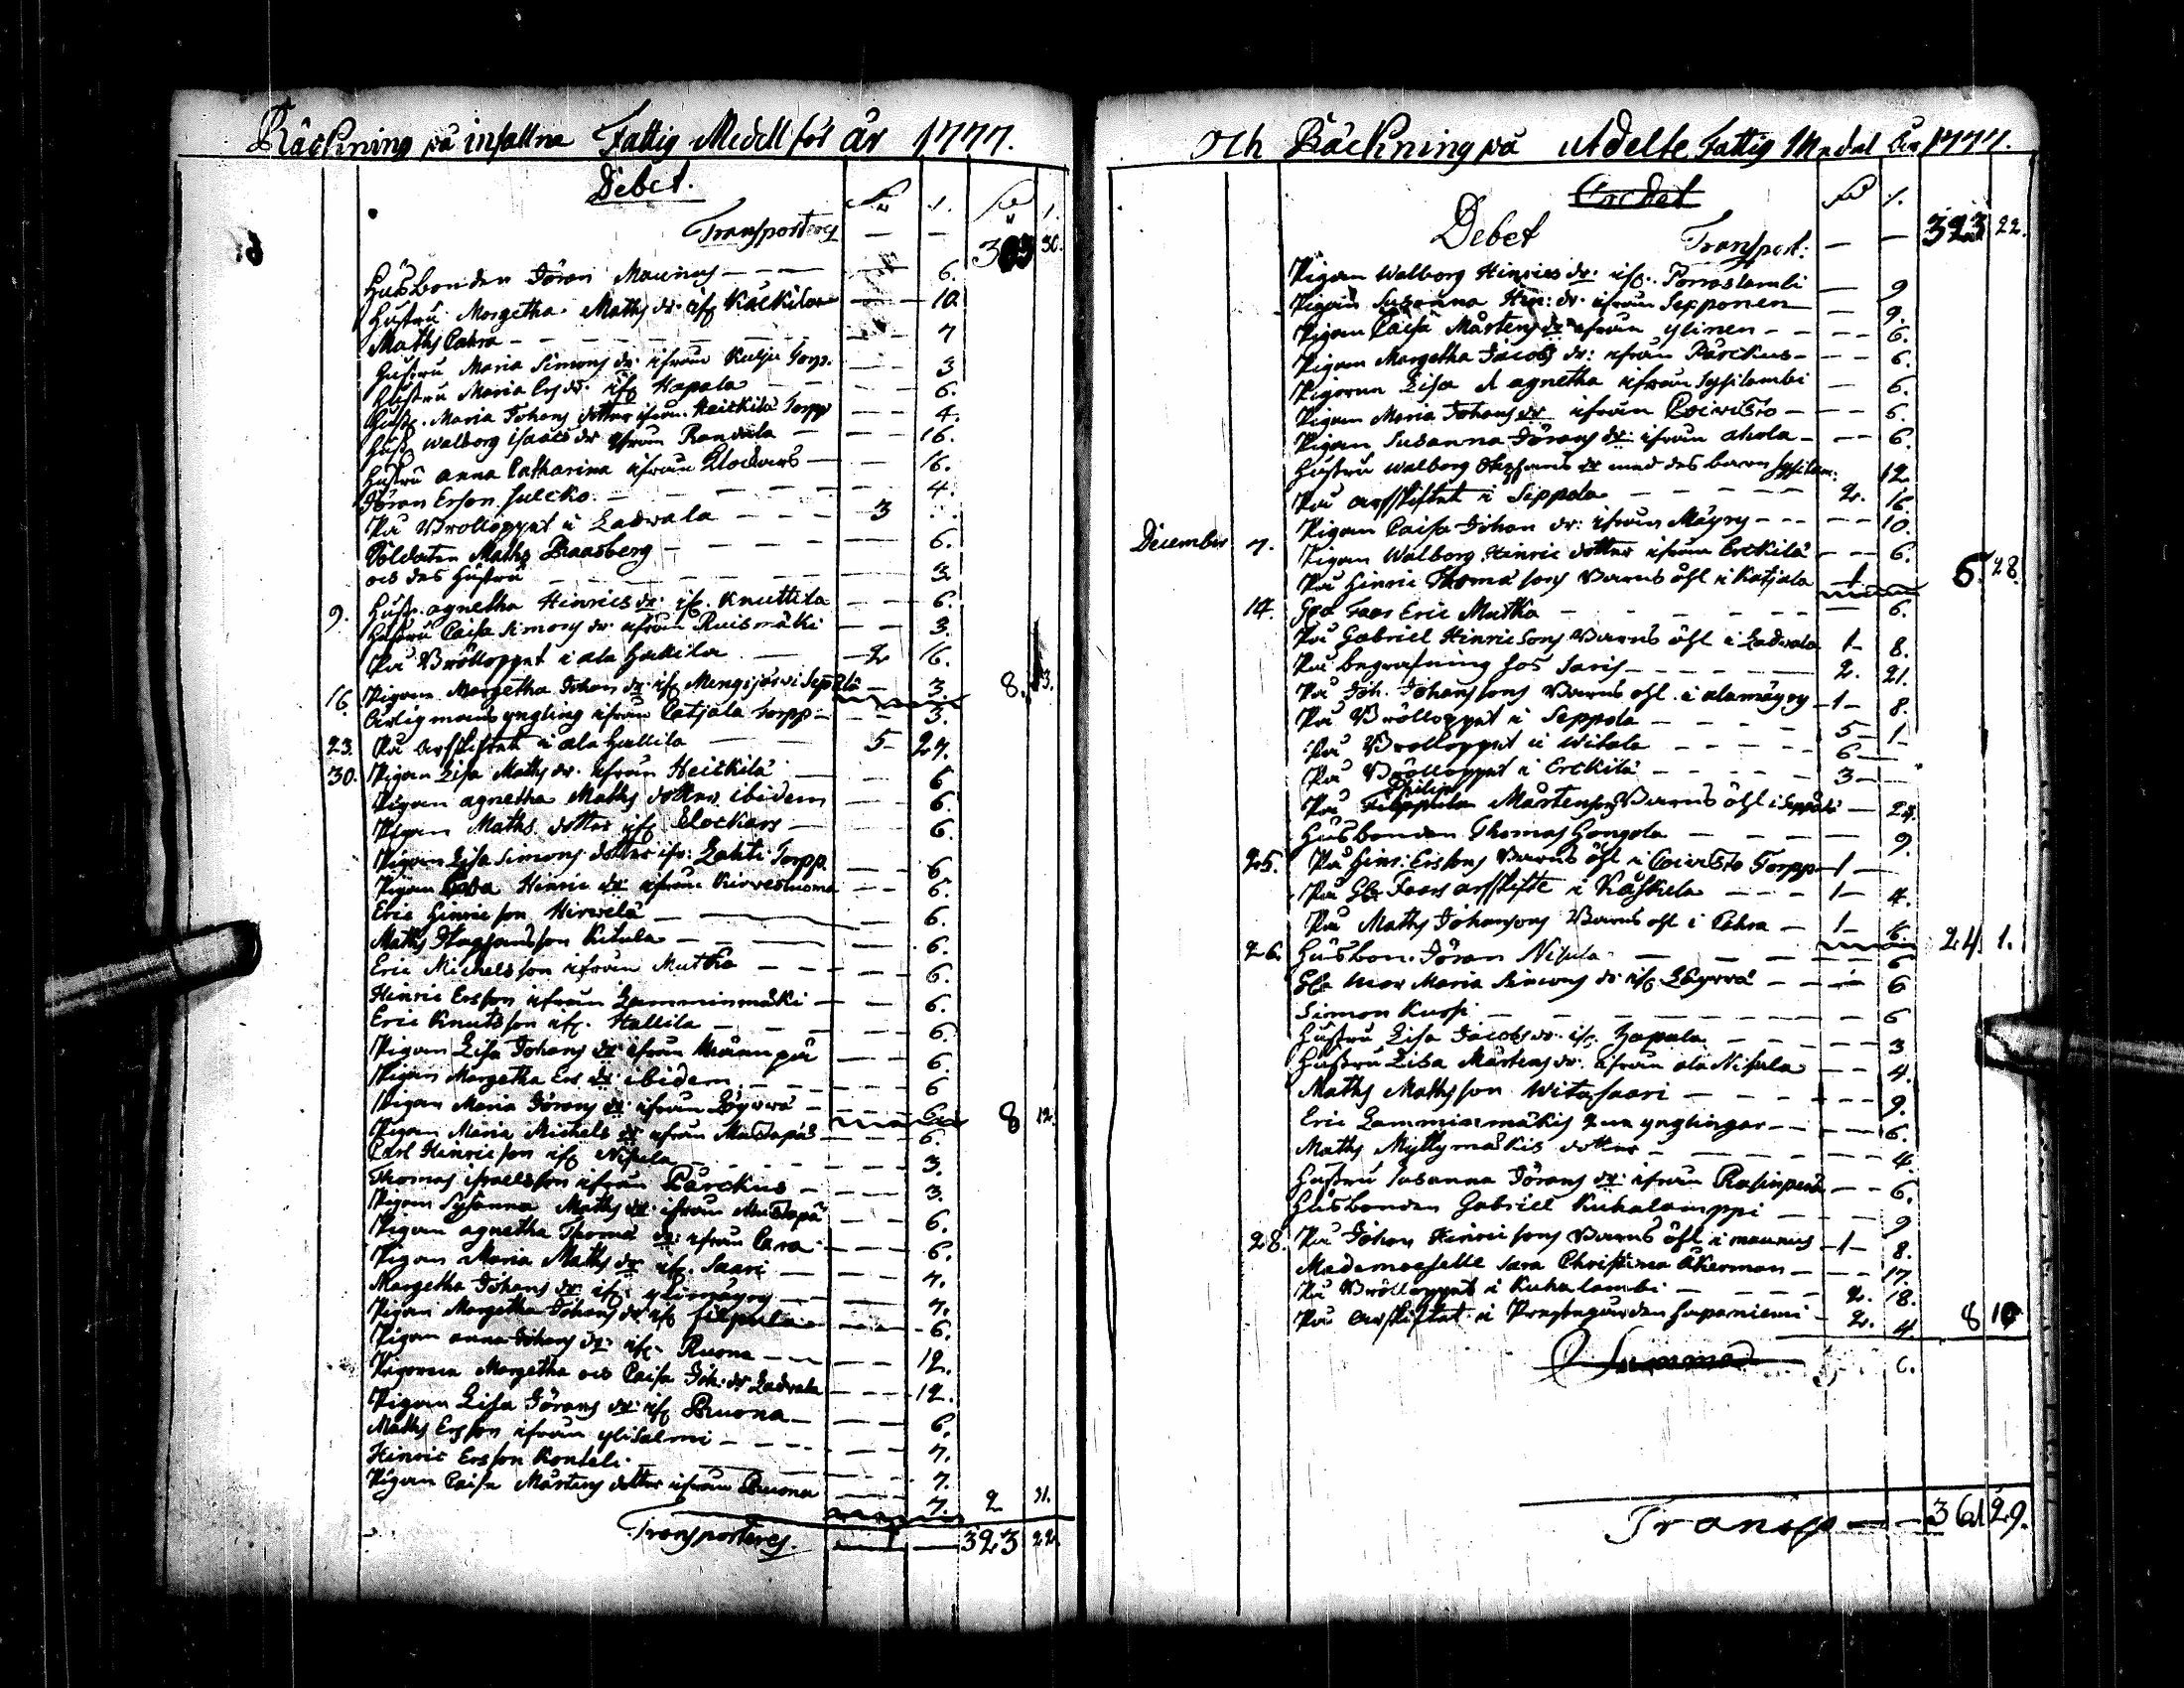 Räckning på infallna Fattig Medell för år 1777.
Debet.
Transporteres — — 303 30.
Husbonden Jöran Maunus — — — 6.
Hustru Margetha Maths dr. ifr Käckilar — 10
Maths Cahra — — — 7
Hustru Maria Simons dr. ifrån Kulju Torp. — 3
Hustru Maria Ers dr. ifr Hapala — 6.
Hustr. Maria Johans dotter ifrån Heickilä Torpp — 4.
Hust. Walborg Isaacs dr ifrån Randala — 16.
Hustru Anna Catharina ifrån Klockars — 16.
Jöran Erson Julcko — 4.
På Bröllopet i Ladvala — 3
Soldaten Maths Braasberg — 6.
och des Hustru — 3
9. Hustr. Agnetha Hinrics dr. ifr. Knuttila — 6.
Hustru Caisa Simons dr ifrån Ruismäki — 3.
På Bröllopet i ala Hakila — 2 16.
16. Pigan Margetha Johans dr ifr Mengijärvi Seppälä — 3. 8. 13.
ärlig mans yngling ifrån Catjala Torpp — 3.
23. På arfskiftet i ala Hallila — 5 27.
30. Pigan Lisa Maths dr. ifrån Heickilä — 6
Pigan Agnetha Maths dotter ibidem — 6.
Pigan Maths dotter ifr Klockars — 6.
Pigan Lisa Simons dotter ifr. Lahti Torpp. — 6
Pigan Hinric dr ifrån Kirvesluoma — 6.
Eric Hinricson Hirvelä — 6.
Maths Staphansson Kitula — 6.
Eric Michelsson ifrån Mutka — 6.
Hinric Ersson ifrån Lamminmäki — 6.
Eric Knutsson ifr. Hallila — 6.
Pigan Lisa Johans dr ifrån Männpää — 6.
Pigan Margetha Ers dr ibidem — 6
Pigan Maria Jörans dr. ifrån Löyvvä — 6 8 12.
Pigan Maria Michels dr ifrån Mustapää — 6.
Carl Hinricson ifr Nisula — 3.
Thomas Israelsson ifrån Pärckus — 3.
Pigan Susanna Maths dr. ifrån Mustapä — 6.
Pigan Agnetha Thoma dr: ifrån Cara — 6.
Pigan Maria Maths dr ifr. Saari — 7.
Margetha Johans dr ifr. ylimäyry — 7.
Pigan Margetha Johans dr ifr Filpula — 6.
Pigan Anna Johans dr: ifr. Ruona — 12.
Pigorna Margetha och Caisa Joh. dr Ladvala — 12.
Pigan Lisa Jörans dr: ifr Ruona — 6.
Maths Ersson ifrån ylisalmi — 7.
Hinric Ersson Konteli — 7.
Pigan Caisa Mårtens dotter ifrån Ruona — 7. 2 31.
Transporteres. — — 323 22.
och Räckning på utdelte Fattig Medel år 1777.
Credet
Debet Transport: — — 323 22.
Pigan Walborg Hinrics dr. ifr. Porraslambi — 9
Pigan Susanna Hin: dr. ifrån Sepponen — 9.
Pigan Caisa Mårtens dr ifrån ylinen — 6.
Pigan Margetha Jacobs dr: ifrån Pärckus — 6.
Pigorna Lisa d Agnetha ifrån Sysilambi — 6.
Pigan Maria Johans dr ifrån Coivisto — 6.
Pigan Susanna Jörans dr: ifrån ahola — 6.
Hustru Walborg Stephans dr med des barn Sysilam: 12
På arfskiftet i Seppola — 2. 16.
Pigan Caisa Johan dr: ifrån Mäyry — 10.
December 7. Pigan Walborg Hinric dotter ifrån Erckilä — 6.
På Hinric Thoma sons Barns öhl i Katjala — 1 6. 28.
14. Gla Faar Eric Mutka — 6.
På Gabriel Hinricsons Barns öhl i Ladvala 1 8.
På begrafning hos Saris — 2. 21.
På Joh. Johanssons Barns öhl i alamäyry — 1 8.
På Bröllopet i Seppola — 5 1
På Bröllopet i Witala — 6
På Bröllopet i Erckilä — 3
Philip
På Filppula Mårtensons Barns öhl i Seppälä — 24.
Husbonden Thomas Gongola — 9.
25. På Hinr: Ersons Barns öhl i Coivisto Torpp 1
På Gla Faars arfskifte i Käskela — 1 4.
På Maths Johansons Barns öhl i Cahra — 1 6. 24. 1.
26. Husbon. Jöran Nisula — 6
Gla Mor Maria Simons dr ifr Löyvvä — 6
Simon Kuosi — 6
Hustru Lisa Jacobs dr. ifr. Hapala — 3
Hustru Lisa Mårtens dr. ifrån ala Nisula — 4.
Maths Mathsson Witasaari — 9.
Eric Lamminmäkis 2ne ynglingar — 6.
Maths Myllymäkis dotter — 4
Hustru Susanna Jörans dr ifrån Rasinperä — 6.
Husbonden Gabriel Kuhalamppi — 9
28. På Johan Hinricsons Barns öhl i Maunus — 1 8.
Mademoselle Sara Christina Åkerman — 17.
På Bröllopet i Kuhalambi — 2. 18.
På arfskiftet i Prestegården Haparniemi — 2. 4 8 10
Summa
Transp — — 361 29.